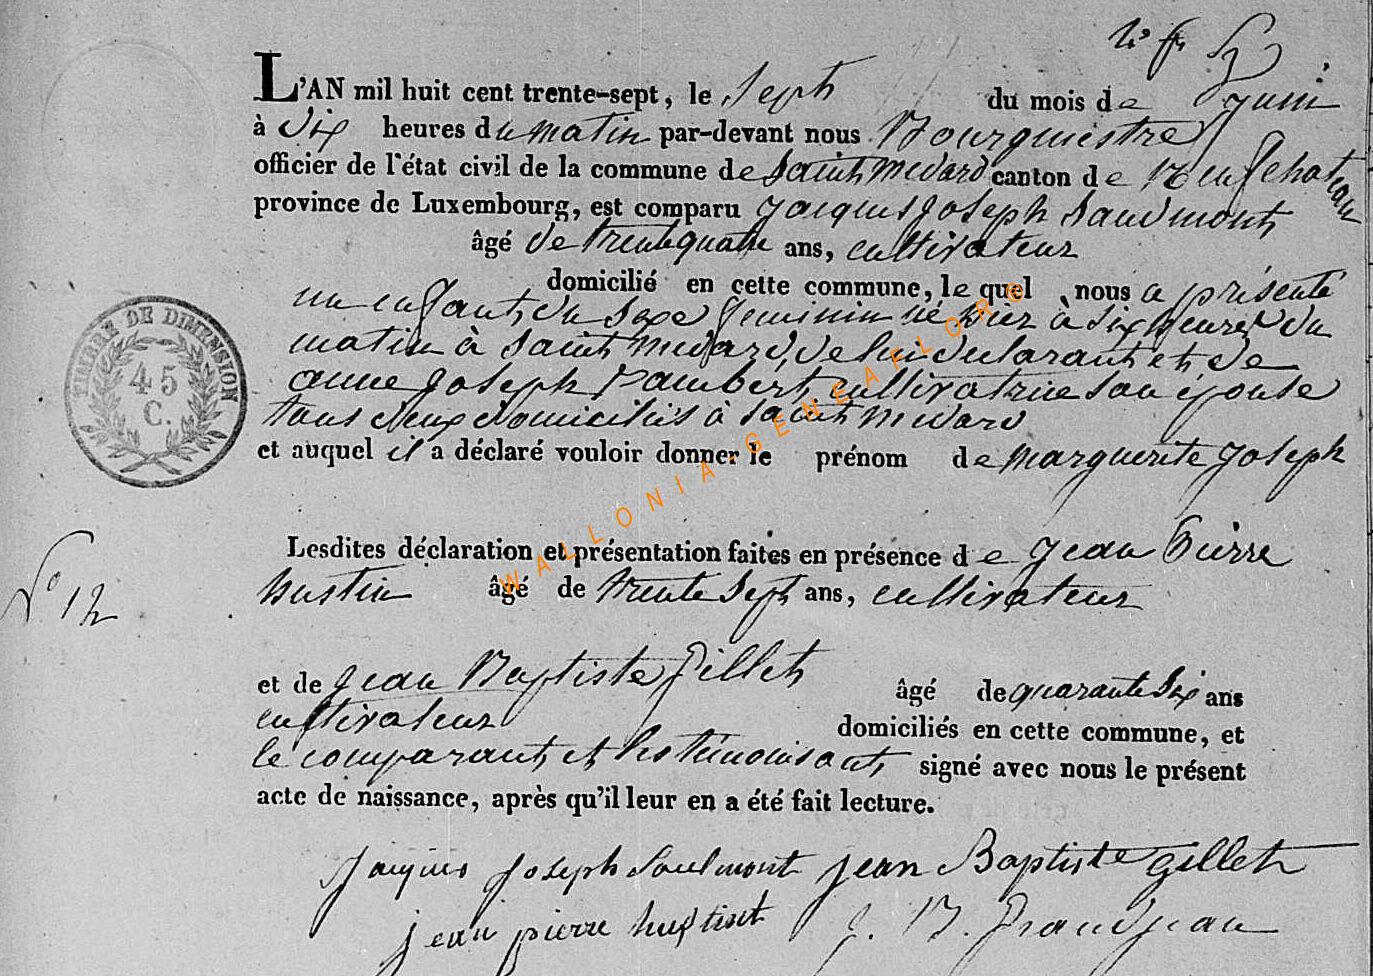 L'AN mil huit cent trente-sept, le Sept du mois de juin
à dix heures du matin par-devant nous Bourguestre
officier de l'état civil de la commune de Saint Medard canton de Neufchateau
province de Luxembourg, est comparu Jacques Joseph Saudmont
âgé de trente quatre ans, cultivateur
domicilié en cette commune, le quel nous a présenté
un enfant du Sexe feminin né hier à six heures du
matin à Saint Medard, de lui declarant et de
anne Joseph Lambert cultivatrice son épouse
tous deux domiciliés à Saint Medard
et auquel il a déclaré vouloir donner le prénom de Marguerite Joseph
Lesdites déclaration et présentation faites en présence de Jean Pierre
hustin âgé de trente Sept ans, cultivateur
et de Jean Baptiste Gillet âgé de quarante Six ans
cultivateur domiciliés en cette commune, et
le comparant et les témoins ont signé avec nous le présent
acte de naissance, après qu'il leur en a été fait lecture.
Jacques Joseph Saulmont jean Baptiste gillet
jean pierre hustint J. B. Grandjean
TIMBRE DE DIMENSION
45
C.
N° 12
WALLONIA-GENEAFLORE